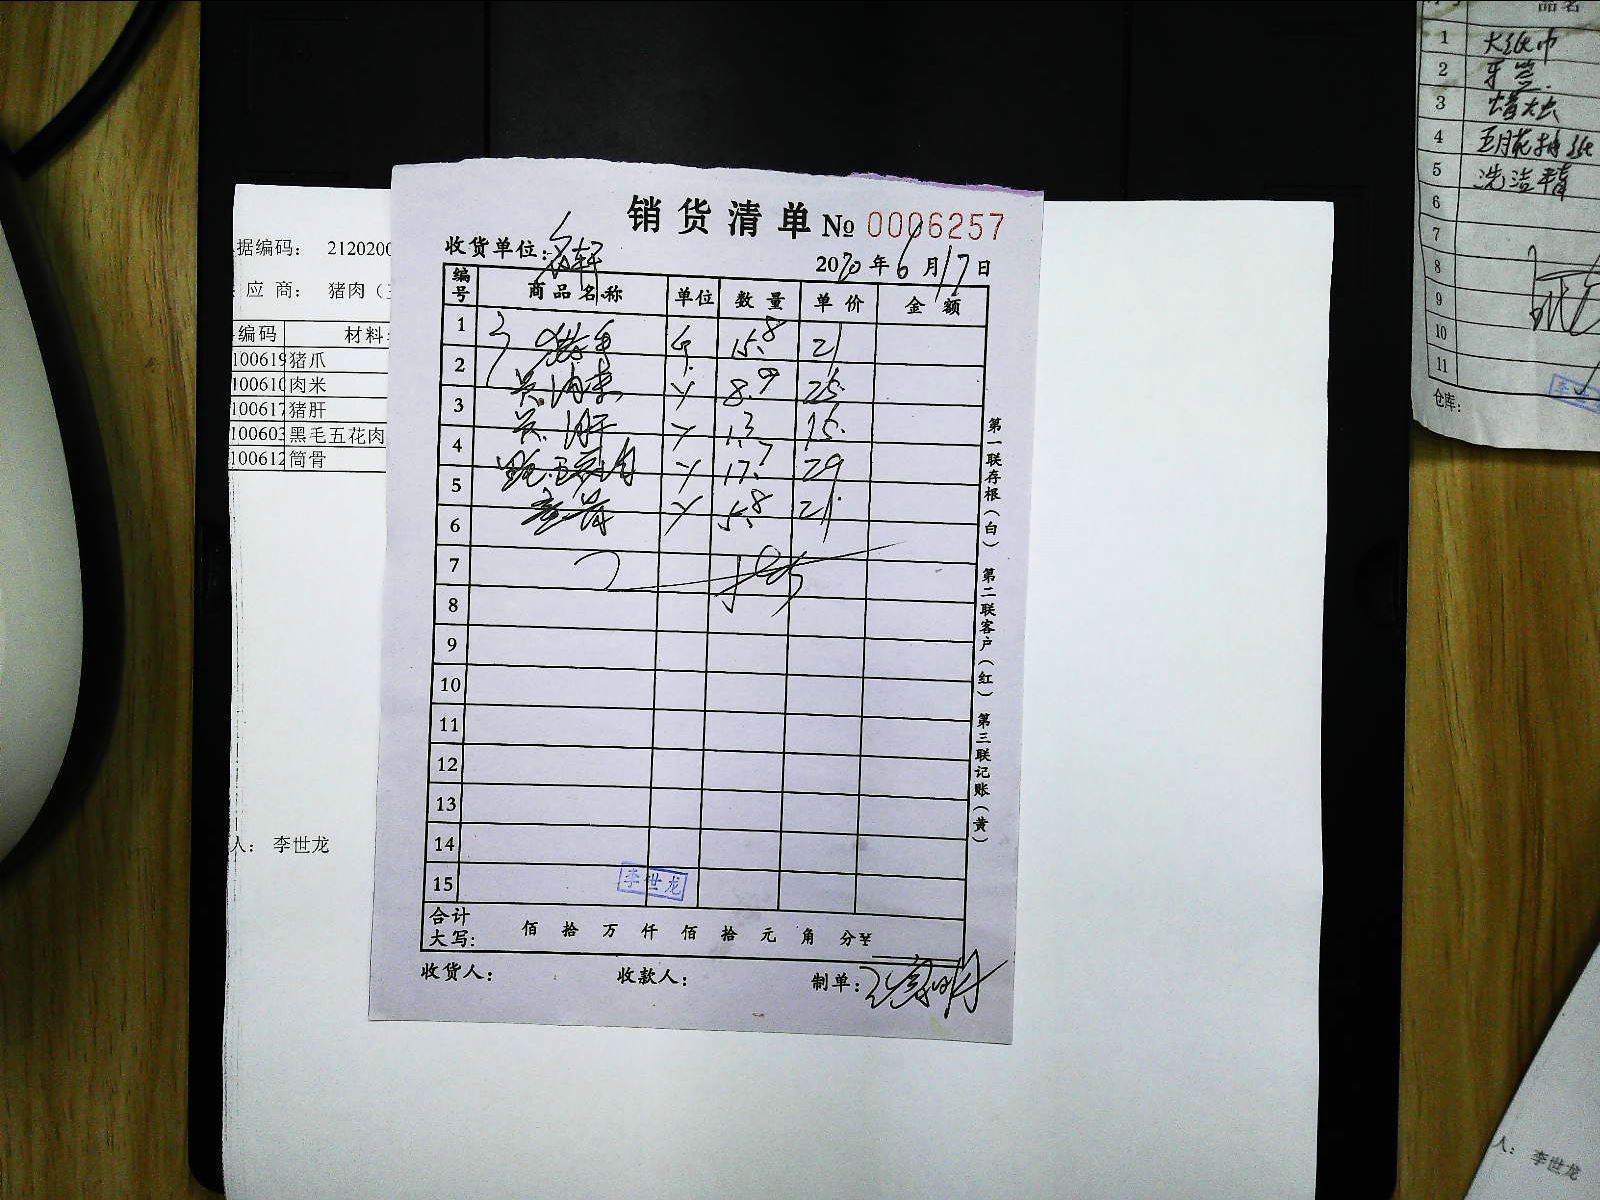 销货清单 № 0006257
收货单位: 名轩
2020 年 6 月 17 日
编号 商品名称 单位 数量 单价 金额
1 猪手 斤 15.8 21
2 8.9 25
3 肝 1.3 15
4 五花肉 17.7 29
5 5.8 21
6
7
8
9
10
11
12
13
14
15
李世龙
合计大写: 佰 拾 万 仟 佰 拾 元 角 分
收货人: 收款人: 制单:
第一联存根(白) 第二联客户(红) 第三联记账(黄)
据编码: 2120200
应 商: 猪肉(
编码 材料
100619 猪爪
100610 肉米
100617 猪肝
100603 黑毛五花肉
100612 筒骨
人: 李世龙
品名
1 大纸巾
2 牙签
3
4 抽纸
5 洗洁精
6
7
8
9
10
11
仓库:
人: 李世龙